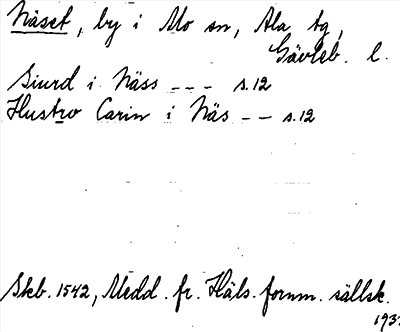 Näset, by i Mo sn, Ala tg,
Gävleb. l.
Siurd i Näss --- s.12
Hustro Carin i Näs -- s.12
Skb. 1542, Medd. fr. Häls. fornm. sällsk.